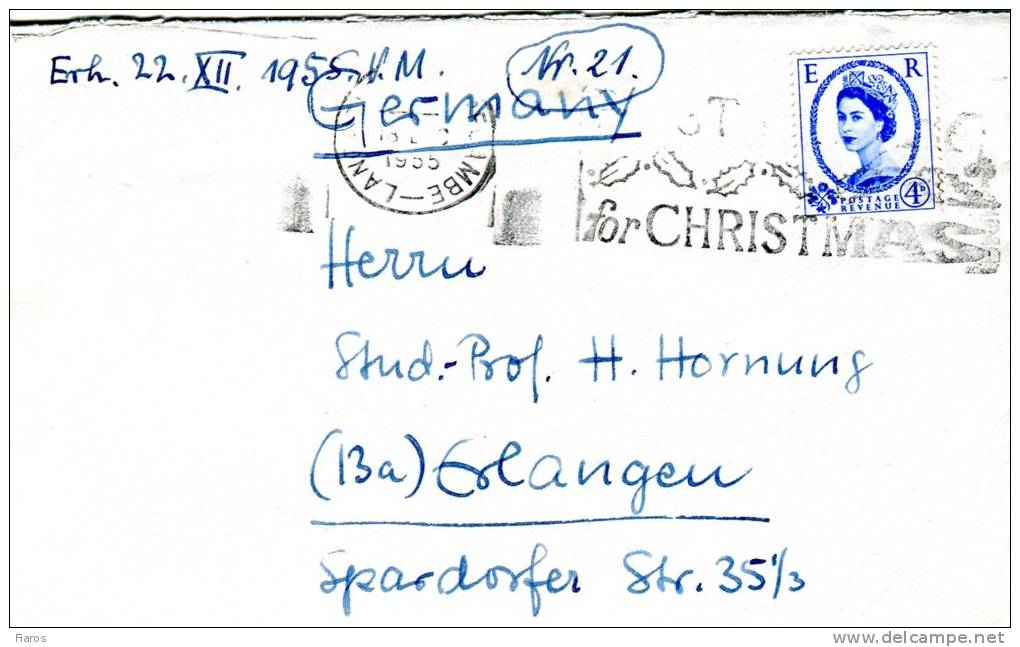 Erh. 22. XII. 1955. H. M. Nr. 21.
Germany
E R
1955
MBE-LAN
POSTAGE
REVENUE
4D
for CHRISTMAS
Herrn
Stud.-Prof. H. Hornung
(13a) Erlangen
Spardorfer Str. 35 1/3
Raros
www.delcampe.net